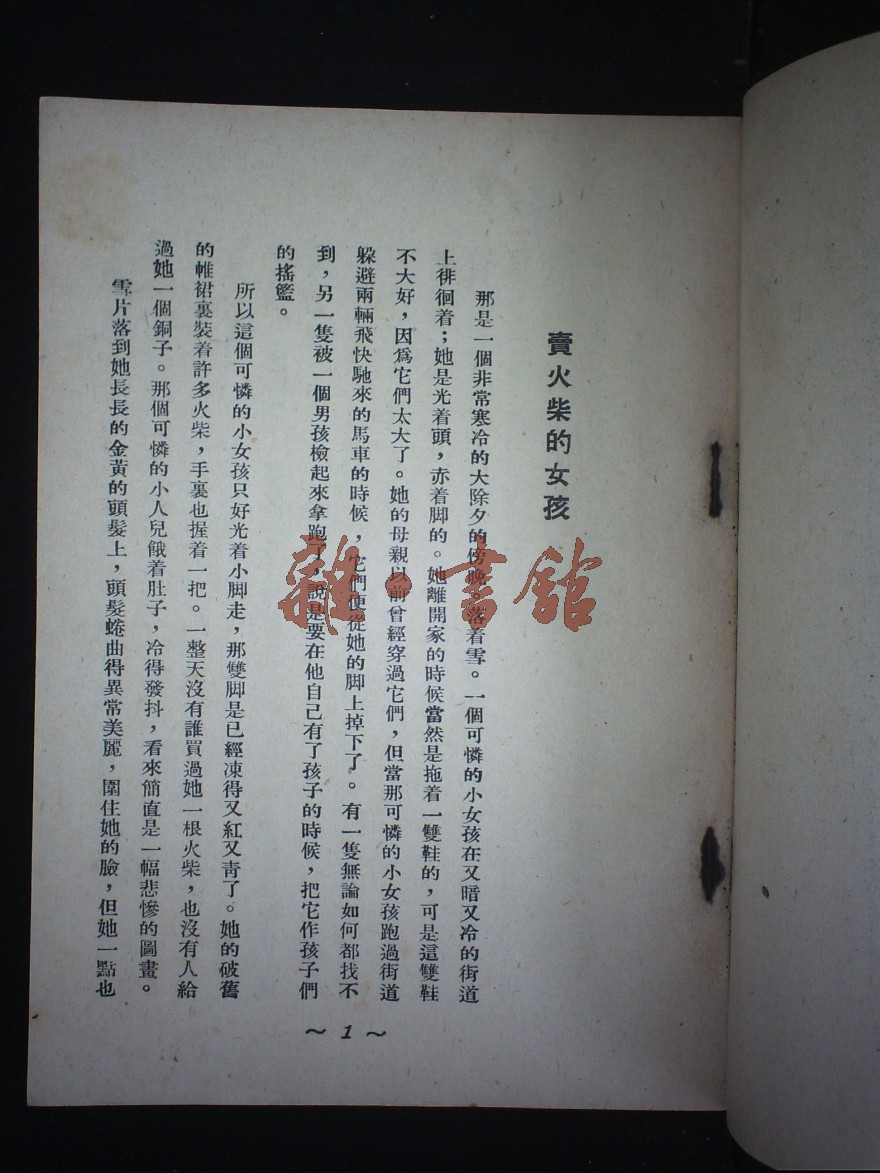 賣火柴的女孩
那是一個非常寒冷的大除夕的傍晚，落着雪。一個可憐的小女孩在又暗又冷的街道
上徘徊着；她是光着頭，赤着脚的。她離開家的時候當然是拖着一雙鞋的，可是這雙鞋
不大好，因爲它們太大了。她的母親以前曾經穿過它們，但當那可憐的小女孩跑過街道
躲避兩輛飛快馳來的馬車的時候，它們便從她的脚上掉下了。有一隻無論如何都找不
到，另一隻被一個男孩檢起來拿跑了，說是要在他自己有了孩子的時候，把它作孩子們
的搖籃。
所以這個可憐的小女孩只好光着小脚走，那雙脚是已經凍得又紅又青了。她的破舊
的帷裙裏裝着許多火柴，手裏也握着一把。一整天沒有誰買過她一根火柴，也沒有人給
過她一個銅子。那個可憐的小人兒餓着肚子，冷得發抖，看來簡直是一幅悲慘的圖畫。
雪片落到她長長的金黃的頭髮上，頭髮蜷曲得異常美麗，圍住她的臉，但她一點也
～1～
雜·書館